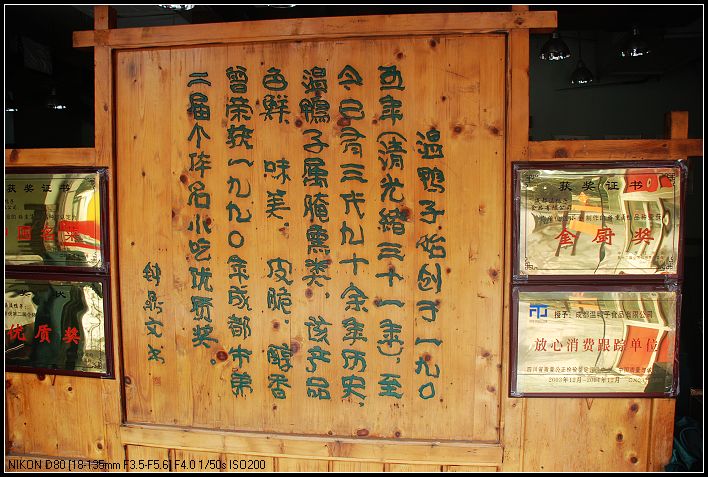 温鸭子始创于一九〇
五年(清光绪三十一年),至
今已有三代九十余年历史,
温鸭子属腌熏类,该产品
色鲜 味美,皮脆,醇香
曾荣获一九九〇年成都市第
二届个体名小吃优质奖。
钟鼎文书
获奖证书
优质奖
获奖证书
金厨奖
授予:成都温鸭子食品有限公司
放心消费跟踪单位
2003年12月-2004年12月
NIKON D80 [18-135mm F3.5-F5.6] F4.0 1/50s ISO200